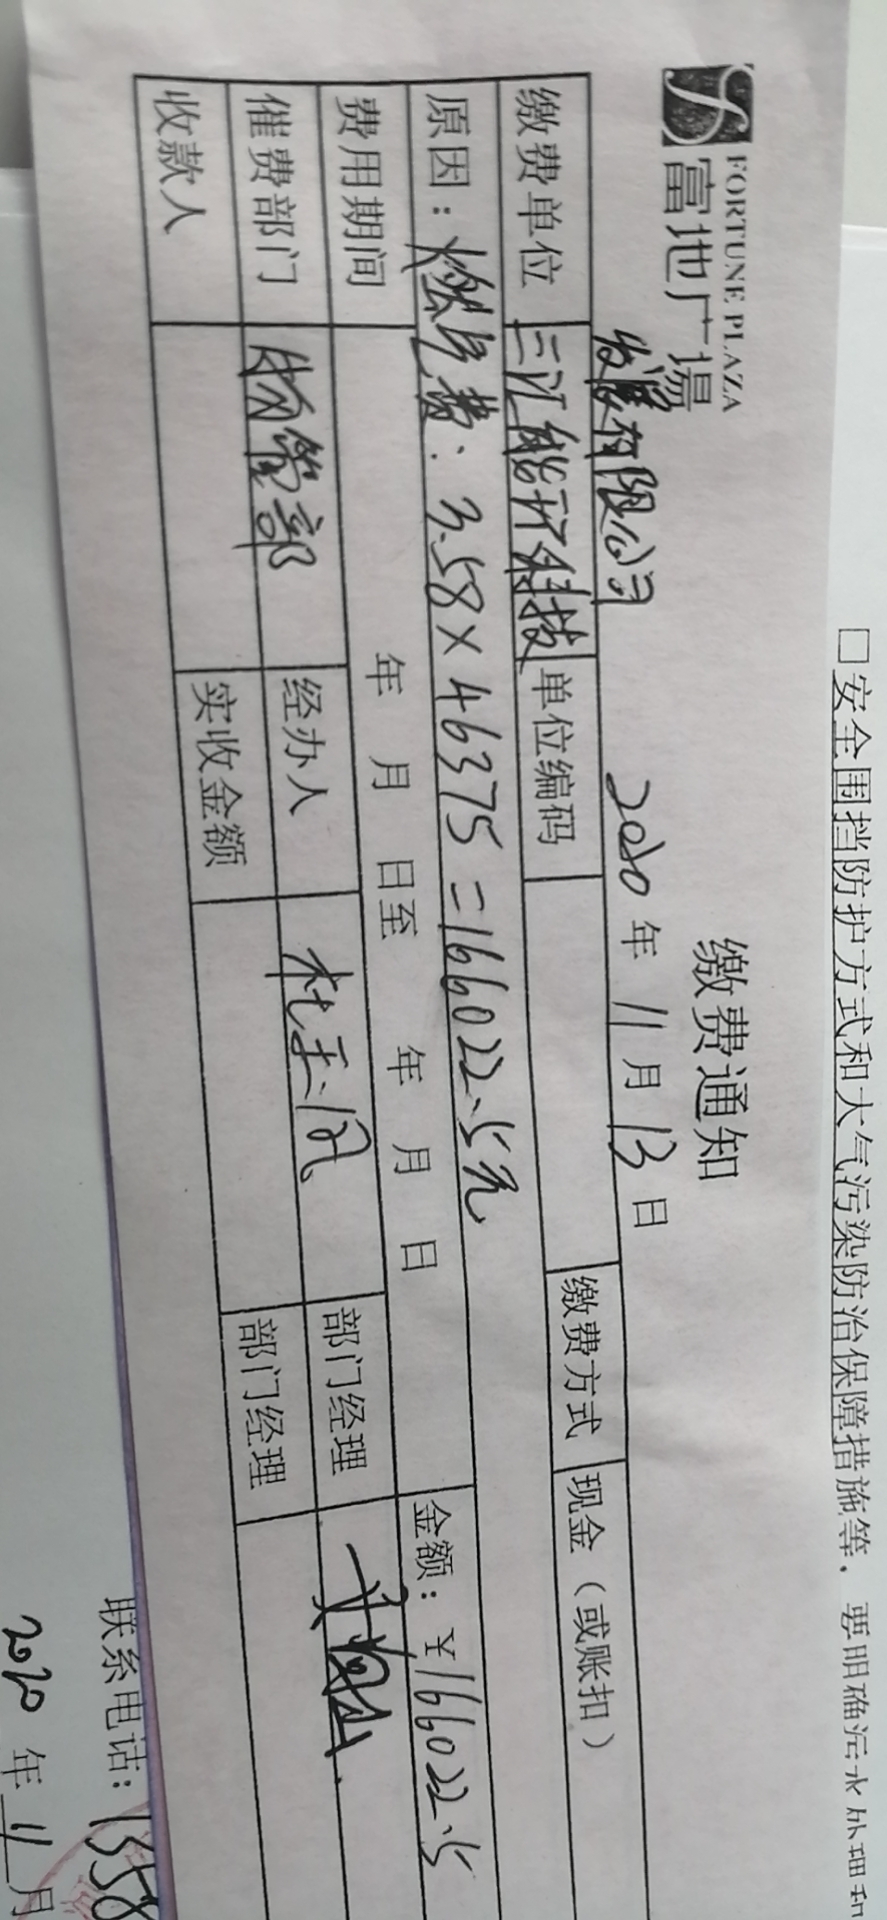 □安全围挡防护方式和大气污染防治保障措施等，要明确污水处理和
FORTUNE PLAZA
富地广場
缴费通知
2020年11月13日
发展有限公司
缴费单位 三汇能环科技 单位编码 缴费方式 现金（或账扣）
原因：燃气费：3.58×46375=166022.5元 金额：¥166022.5
费用期间 年 月 日至 年 月 日
催费部门 物管部 经办人 杜玉 部门经理
收款人 实收金额 部门经理
联系电话：1358
2020年11月